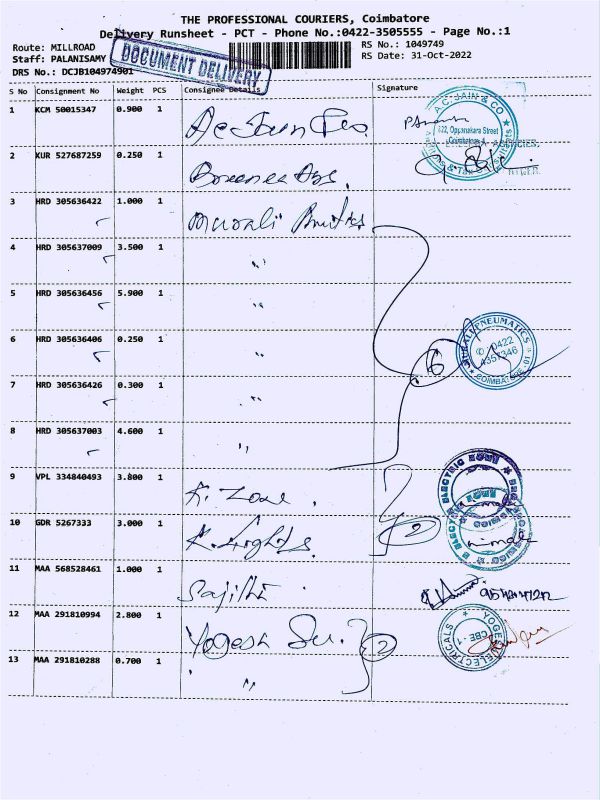 THE PROFESSIONAL COURIERS, Coimbatore
Delivery Runsheet - PCT - Phone No.:0422-3505555 - Page No.:1
Route: MILLROAD
RS No.: 1049749
Staff: PALANISAMY
RS Date: 31-Oct-2022
DRS No.: DCJB104974901
DOCUMENT DELIVERY
S No Consignment No Weight PCS Consignee Details Signature
1 KCM 50015347 0.900 1
A.C. JAIN & CO
622, Oppanakara Street
Coimbatore
2 KUR 527687259 0.250 1
3 HRD 305636422 1.000 1 Murali
4 HRD 305637009 3.500 1 "
5 HRD 305636456 5.900 1 "
6 HRD 305636406 0.250 1 "
6
MURALI PNEUMATICS
0422
4357346
COIMBATORE
7 HRD 305636426 0.300 1 "
8 HRD 305637003 4.600 1 "
9 VPL 334840493 3.800 1 K. Zone
ELECTRIC ZONE
10 GDR 5267333 3.000 1 K. Lights
2
nirmala
11 MAA 568528461 1.000 1 Sajithi
12 MAA 291810994 2.800 1 Yogesh
2
YOGESH ELECTRICALS
CBE-1
13 MAA 291810288 0.700 1 "